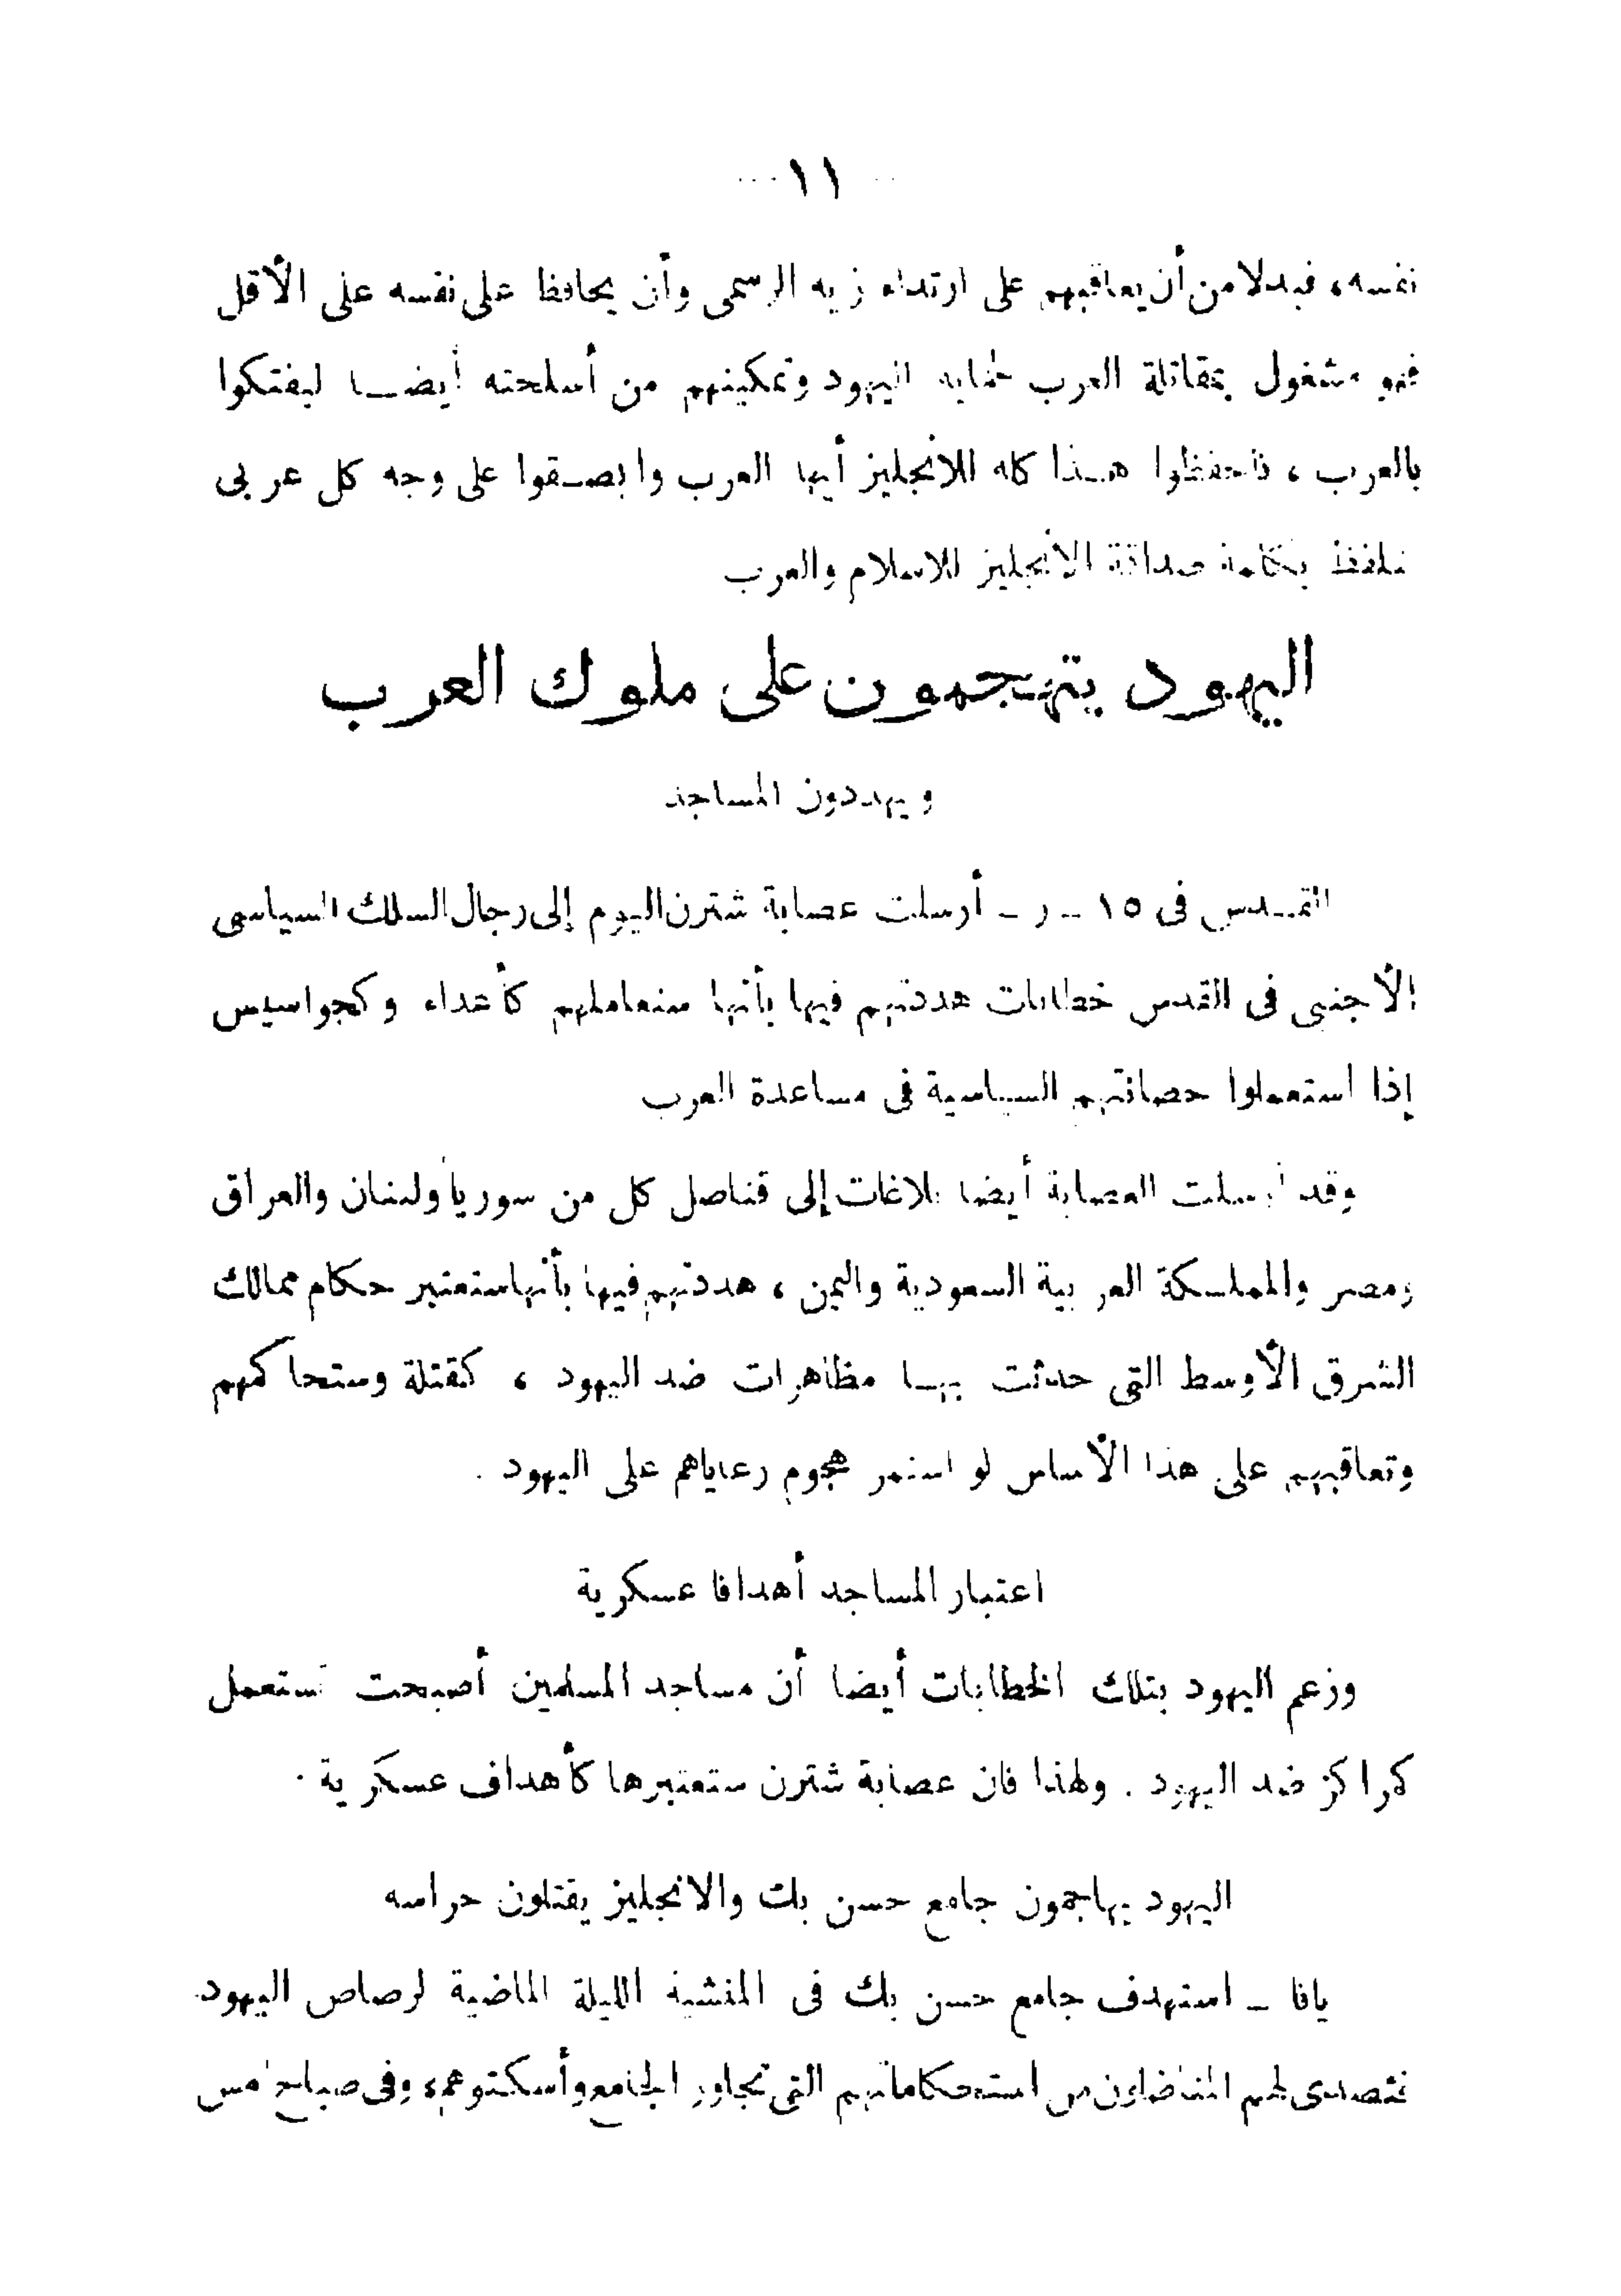 ١١
نفسه، فبدلا من أن يعاقبهم على ارتداء زيه الرسمى وأن يحافظ على نفسه على الأقل
فهو مشغول بمقاتلة العرب لحماية اليهود وتمكينهم من أسلحته أيضا ليفتكوا
بالعرب ، فاحفظوا هذا كله للانجليز أيها العرب وابصقوا على وجه كل عربى
تلفظ بكلمة صداقة الانجليز للاسلام والعرب
اليهود يتهجمون على ملوك العرب
ويهددون المساجد
القدس فى ١٥ – ر – أرسلت عصابة شترن اليوم إلى رجال السلك السياسى
الأجنبى فى القدس خطابات هددتهم فيها بأنها ستعاملهم كأعداء وكجواسيس
إذا استعملوا حصانتهم السياسية فى مساعدة العرب
وقد أرسلت العصابة أيضا بلاغات إلى قناصل كل من سوريا ولبنان والعراق
ومصر والمملكة العربية السعودية واليمن ، هددتهم فيها بأنها ستعتبر حكام ممالك
الشرق الأوسط التى حدثت بها مظاهرات ضد اليهود ، كقتلة وستحاكمهم
وتعاقبهم على هذا الأساس لو استمر هجوم رعاياهم على اليهود .
اعتبار المساجد أهدافا عسكرية
وزعم اليهود بتلك الخطابات أيضا أن مساجد المسلمين أصبحت تستعمل
كمراكز ضد اليهود . ولهذا فان عصابة شترن ستعتبرها كأهداف عسكرية .
اليهود يهاجمون جامع حسن بك والانجليز يقتلون حراسه
يافا – استهدف جامع حسن بك فى المنشية الليلة الماضية لرصاص اليهود
فتصدى لهم المناضلون من استحكاماتهم التى تجاور الجامع وأسكتوهم، وفى صباح أمس